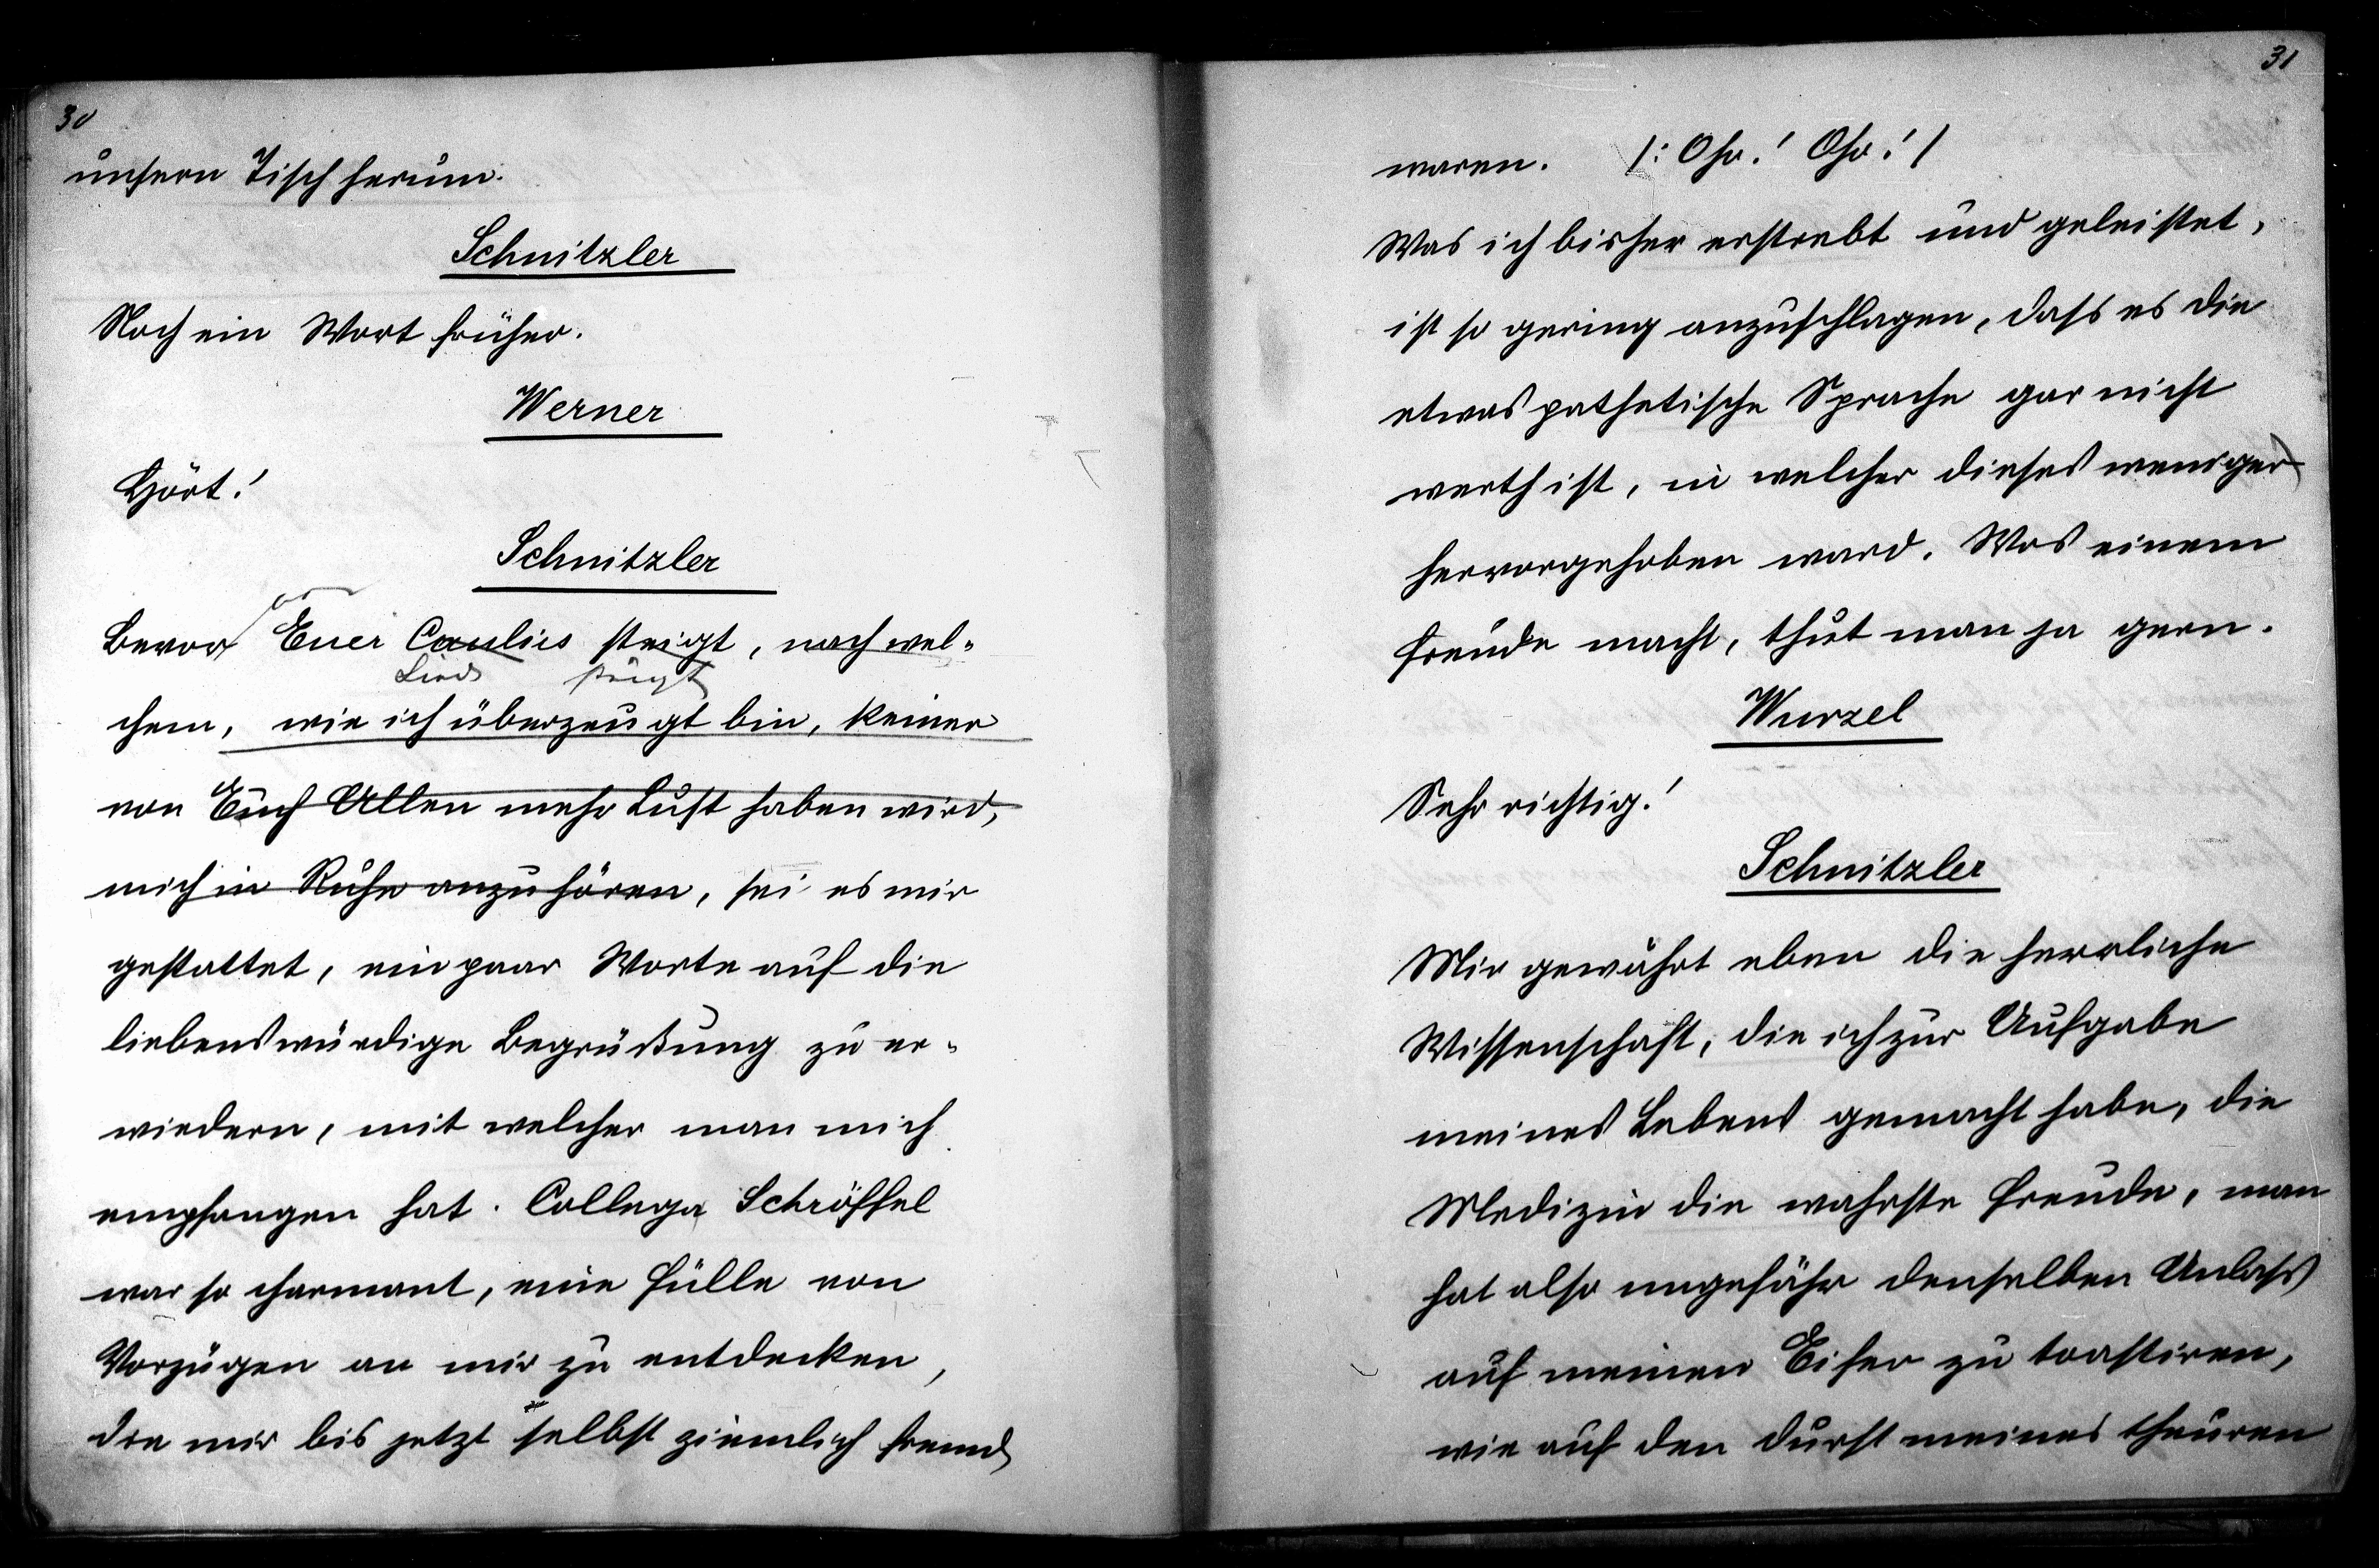 30
unsern Tisch herum.
Schnitzler
Noch ein Wort früher.
Werner
Hört!
Schnitzler
Bevor Euer Cantus steigt, nach wel-
Lied steigt
chem, wie ich überzeugt bin, keiner
von Euch Allen mehr Lust haben wird,
mich in Ruhe anzuhören, sei es mir
gestattet, ein paar Worte auf die
liebenswürdige Begrüßung zu er-
wiedern, mit welcher man mich
empfangen hat. Collega Schröffel
war so charmant, eine Fülle von
Vorzügen an mir zu entdecken,
die mir bis jetzt selbst ziemlich fremd
31
waren. /: Oho! Oho! /
Was ich bisher erstrebt und geleistet,
ist so gering anzuschlagen, dass es die
etwas pathetische Sprache gar nicht
werth ist, in welcher dieses wenige
hervorgehoben ward. Was einem
Freude macht, thut man ja gern.
Wurzel
Sehr richtig!
Schnitzler
Mir gewährt eben die herrliche
Wissenschaft, die ich zur Aufgabe
meines Lebens gemacht habe, die
Medizin die wahrste Freude, man
hat also ungefähr denselben Anlass
auf meinen Eifer zu toastiren,
wie auf den Durst meines theuren